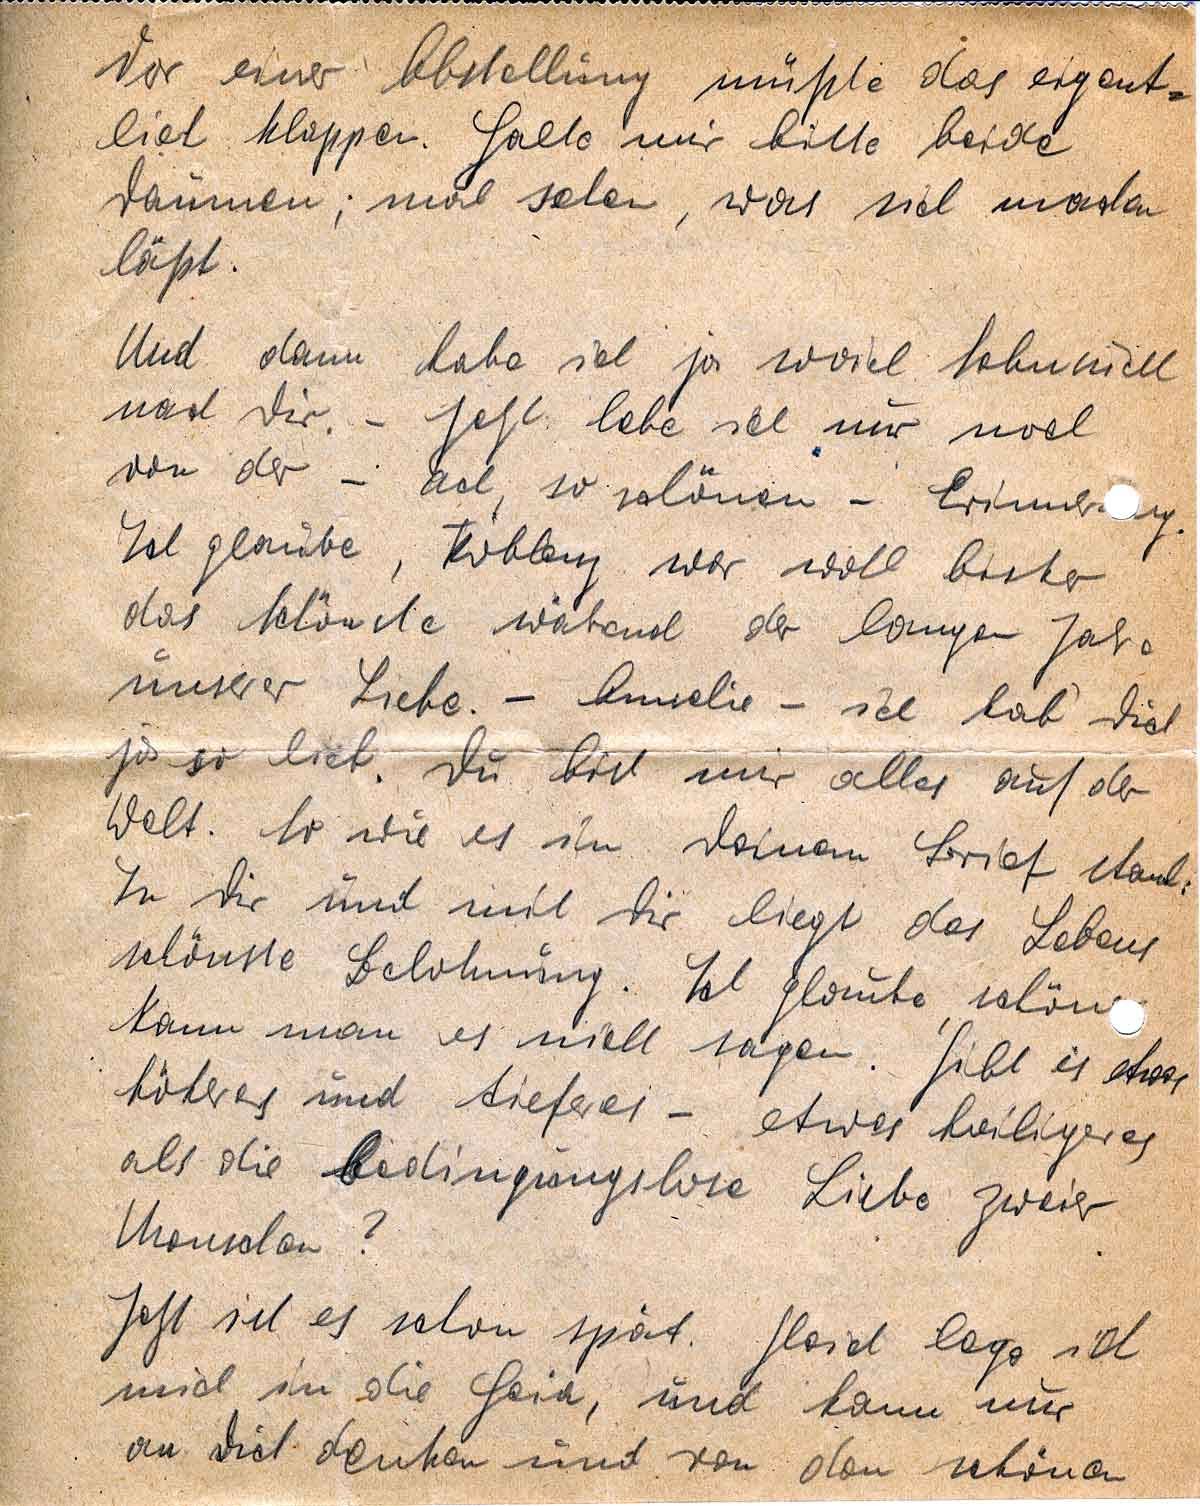 Vor einer Abstellung müßte das eigent=
lich klappen. Halte mir bitte beide
Daumen; mal sehen, was sich machen
läßt.
Und dann habe ich ja soviel Sehnsucht
nach Dir. – Jetzt lebe ich nur noch
von der – ach, so schönen – Erinnerung.
Ich glaube, Koblenz war wohl bisher
das Schönste während der langen Jahre
unserer Liebe. – Annelie – ich hab' Dich
ja so lieb. Du bist mir alles auf der
Welt. So wie es in Deinem Brief stand:
In Dir und mit Dir liegt des Lebens
schönste Belohnung. Ich glaube, schöner
kann man es nicht sagen. Gibt es etwas
höheres und tieferes – etwas heiligeres
als die bedingungslose Liebe zweier
Menschen?
Jetzt ist es schon spät. Gleich lege ich
mich in die Heia, und kann nur
an Dich denken und von den schönen